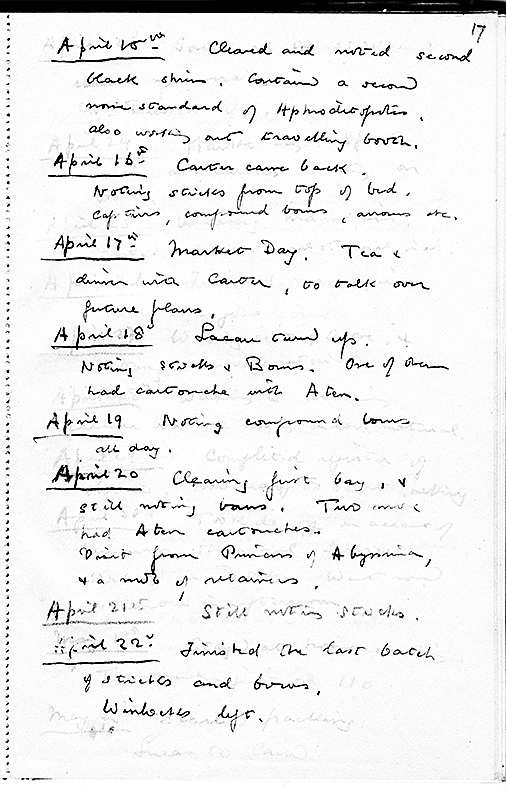 17
April 15th Cleared and noted second
black shrine. Contained a second
nome standard of Aphroditopolis.
also working out travelling booth.
April 16th Carter came back.
Noting sticks from top of bed.
Captives, compound bows, arrows etc.
April 17th Market Day. Tea &
dinner with Carter, to talk over
future plans.
April 18th Lacau turned up.
Noting sticks & Bows. One of them
had cartouche with Aten.
April 19 Noting compound bows
all day.
April 20 Clearing first bay, &
still noting bows. Two more
had Aten cartouches.
Visit from Princes of Abyssinia,
& a mob of retainers.
April 21st Still noting sticks.
April 22d Finished the last batch
of sticks and bows.
Winlocks left.